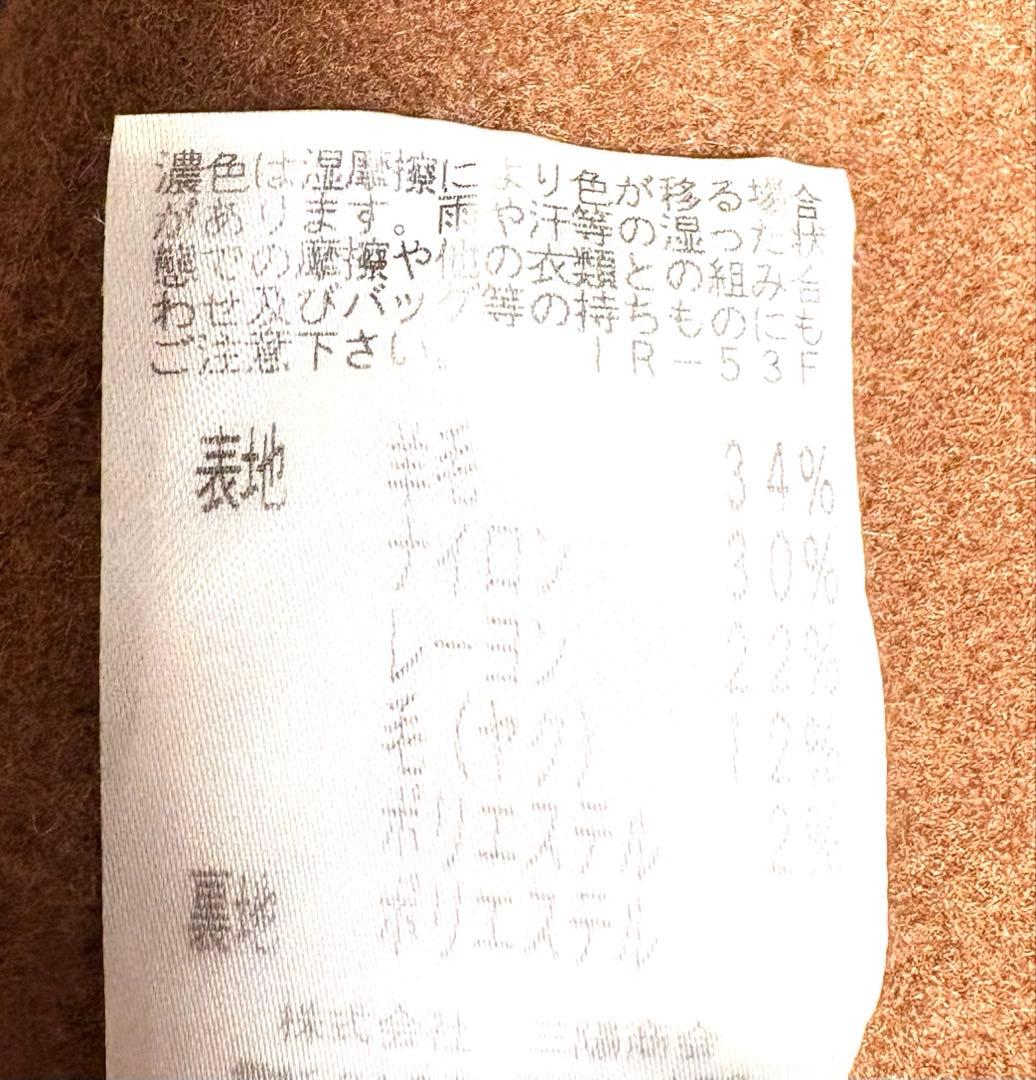 濃色は湿摩擦により色が移る場合
があります。雨や汗等の湿った状
態での摩擦や他の衣類との組み合
わせ及びバッグ等の持ちものにも
ご注意下さい。 IR-53F
表地 羊毛 34%
ナイロン 30%
レーヨン 22%
毛(ヤク) 12%
ポリエステル 2%
裏地 ポリエステル
株式会社 三陽商会